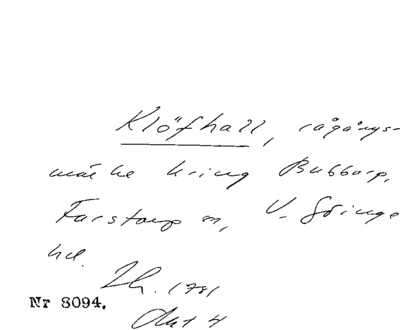 Klöfhall, rågångs-
märke kring Bubbarp,
Farstorp sn, V. Göinge
hd.
Lh. 1781
Akt 4
Nr 8094.